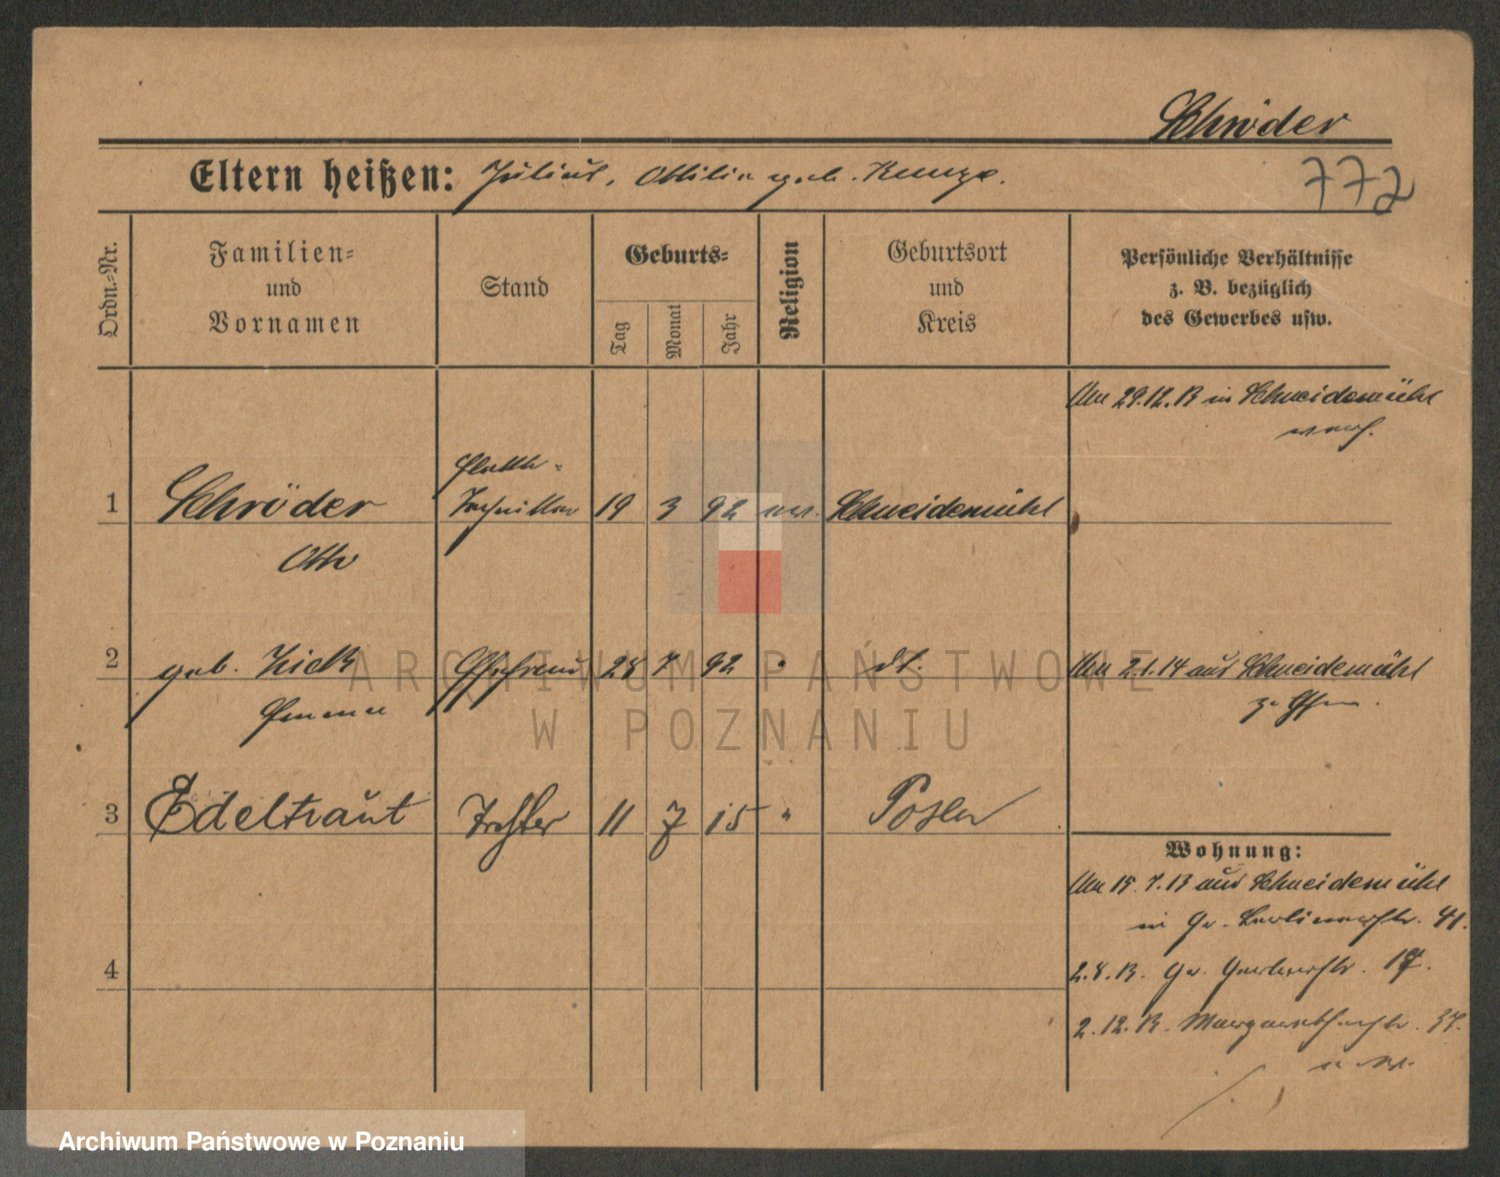 Schröder
Eltern heißen: Julius, Ottilie geb. Runge.
772
Ordn.=Nr.
Familien=
und
Vornamen
Stand
Geburts=
Tag
Monat
Jahr
Religion
Geburtsort
und
Kreis
Persönliche Verhältnisse
z. B. bezüglich
des Gewerbes usw.
Am 29.12.13 in Schneidemühl
verh.
1 Schröder Techniker 19 3 92 ev. Schneidemühl
Otto
2 geb. Kick Ehefrau 28 7 92 " dt.
Emma
Am 2.1.14 aus Schneidemühl
z. Ehem.
3 Edeltraut Tochter 11 7 15 " Posen
Wohnung:
Am 15.7.13 aus Schneidemühl
in Gr. Berlinerstr. 41.
2.8.13. Gr. Gerberstr.
2.12.13. Margarethenstr. 37.
4
ARCHIWUM PAŃSTWOWE
W POZNANIU
Archiwum Państwowe w Poznaniu